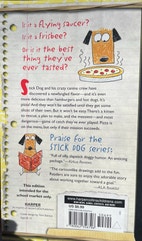 Is it a flying saucer?
Is it a frisbee?
Or is it the best
thing they've
ever tasted?
Stick Dog and his crazy canine crew have
discovered a newfangled flavor—and it's even
more delicious than hamburgers and hot dogs. It's
pizza! And they won't be satisfied until they get some
slices of their own. But it won't be easy. There's a kitten
to rescue, a plan to make, and the messiest—and most
dangerous—game of catch they've ever played. Pizza is
on the menu, but only if their mission succeeds.
Praise for the
STICK DOG series:
"Full of silly slapstick doggy humor. An enticing
package." —Kirkus Reviews
"The conversational drawings add to the fun.
Readers are sure to enjoy the adorable story
about working together toward a goal."
This edition
intended for the
school market only.
HARPER
www.harpercollinschildrens.com